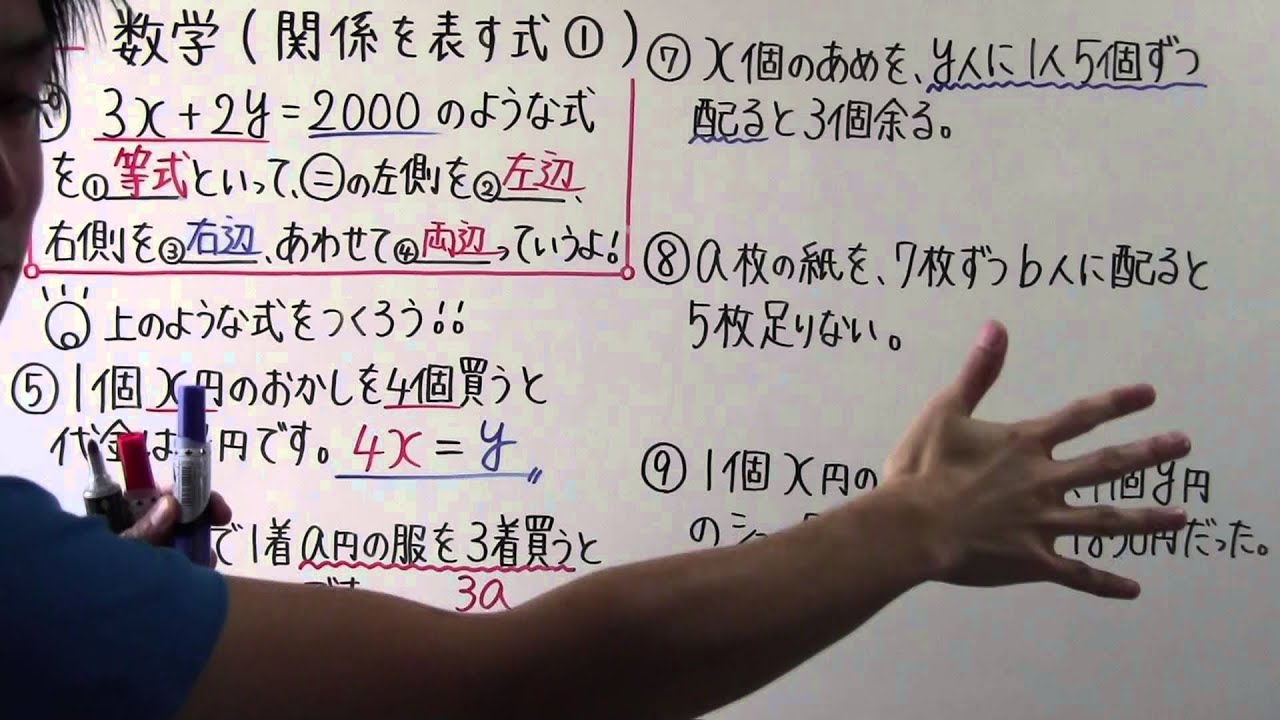 数学(関係を表す式①)
3x+2y=2000のような式
を①等式といって、=の左側を②左辺、
右側を③右辺、あわせて④両辺っていうよ!
上のような式をつくろう!!
⑤1個x円のおかしを4個買うと
代金は 円です。4x=y
で1着a円の服を3着買うと
3a
⑦x個のあめを、y人に1人5個ずつ
配ると3個余る。
⑧a枚の紙を、7枚ずつb人に配ると
5枚足りない。
⑨1個x円の 1個y円
のシ 円だった。